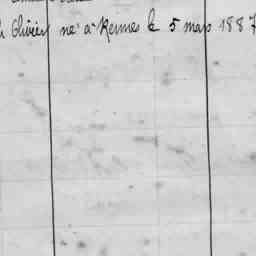 Olivier né à Rennes le 5 mars 1887